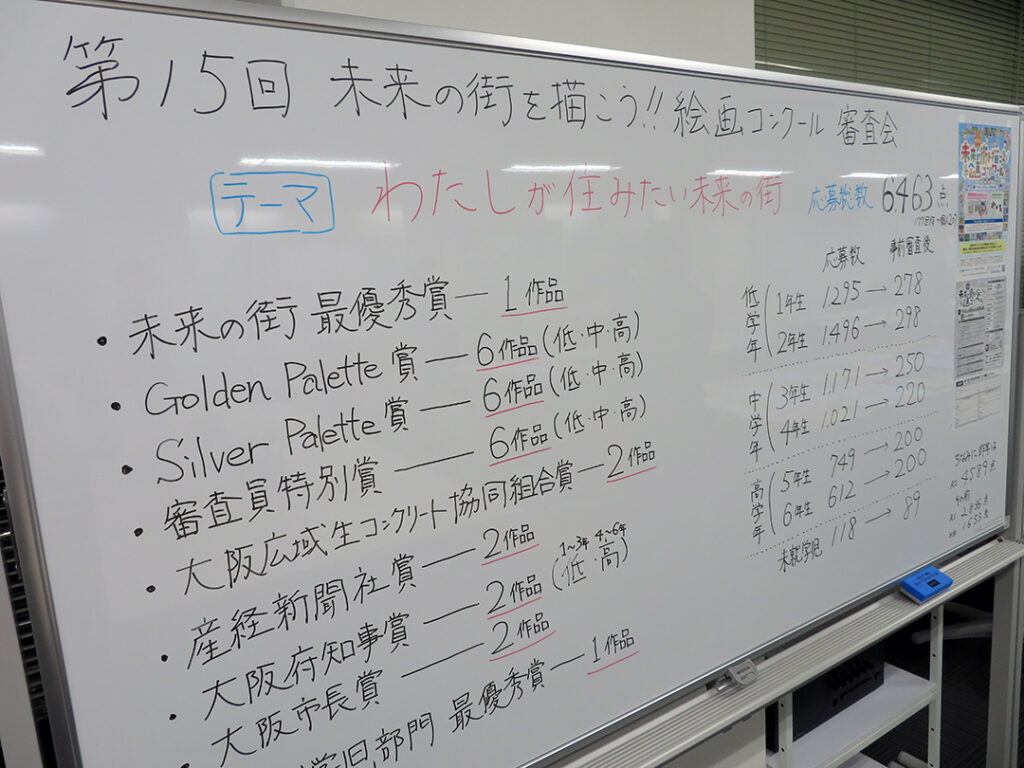 第15回 未来の街を描こう!! 絵画コンクール 審査会
テーマ わたしが住みたい未来の街 応募総数 6463点
・未来の街 最優秀賞 — 1作品
・Golden Palette賞 — 6作品(低・中・高)
・Silver Palette賞 — 6作品(低・中・高)
・審査員特別賞 — 6作品(低・中・高)
・大阪広域生コンクリート協同組合賞 — 2作品
・産経新聞社賞 — 2作品
1~3年 4~6年
・大阪府知事賞 — 2作品(低・高)
・大阪市長賞 — 2作品
部門 最優秀賞 — 1作品
応募数 事前審査後
低学年
1年生 1295 → 278
2年生 1496 → 298
中学年
3年生 1.171 → 250
4年生 1.021 → 220
高学年
5年生 749 → 200
6年生 612 → 200
未就学児 118 → 89